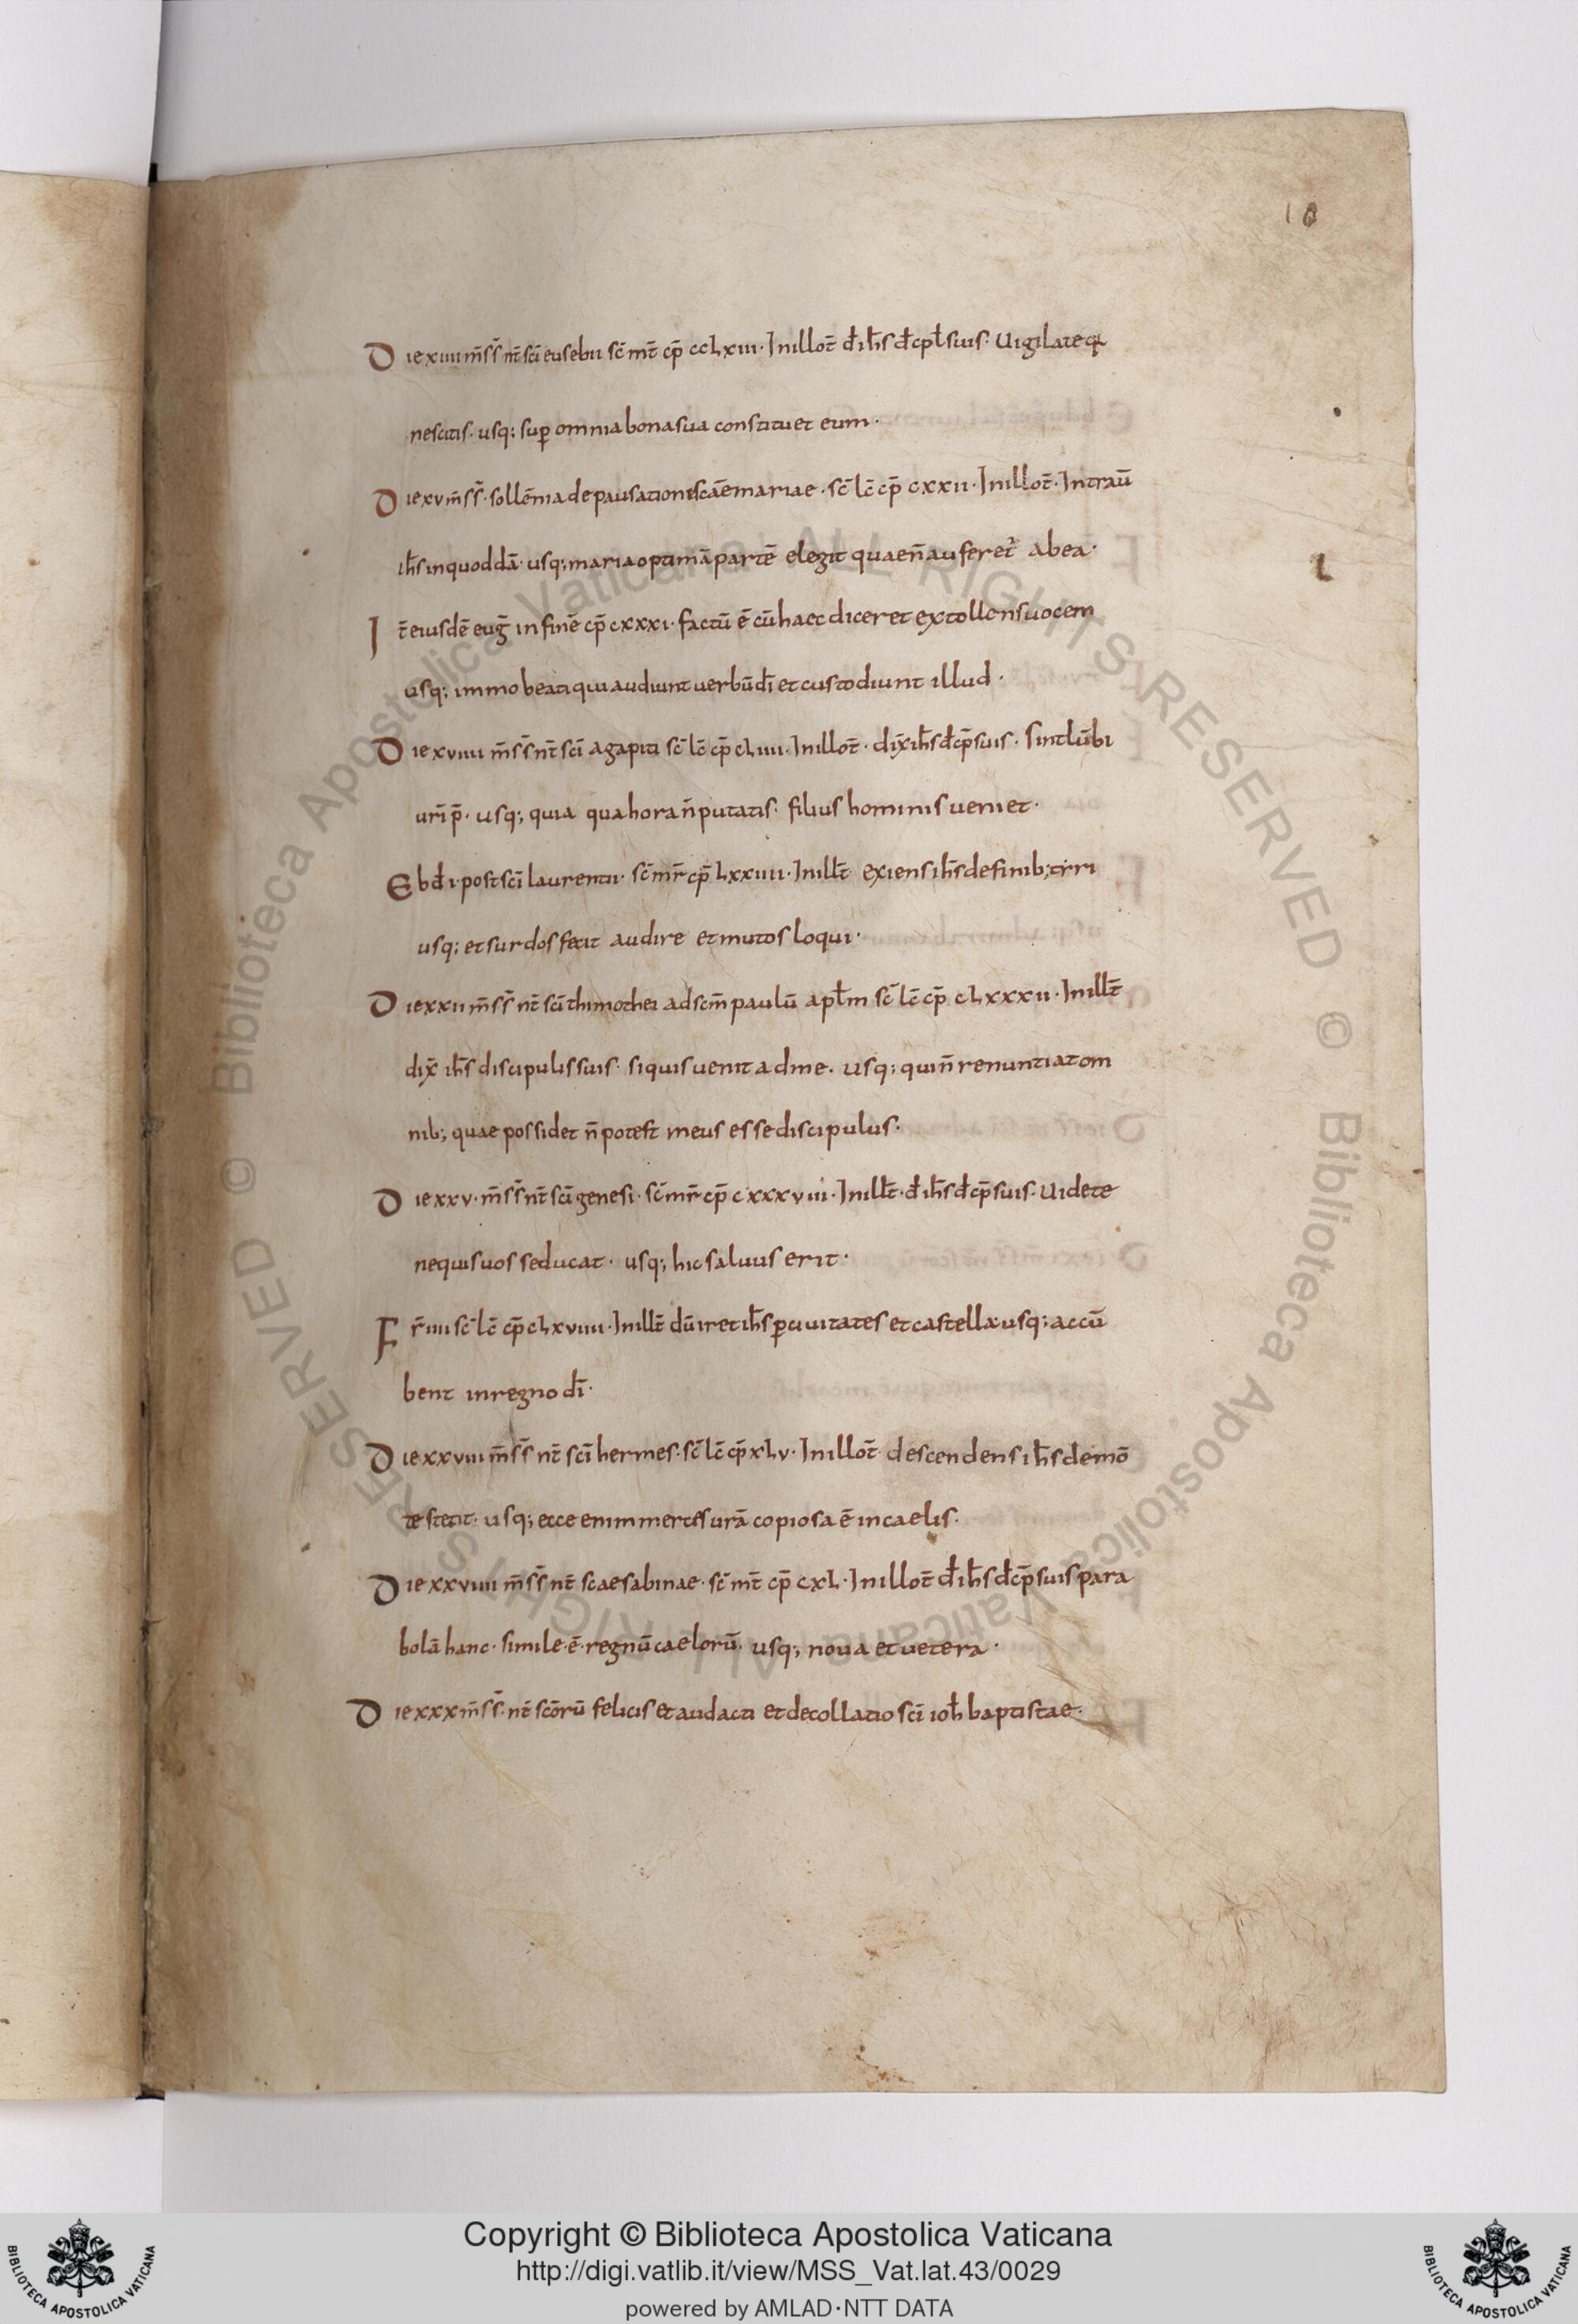 10
Die xiiii m̄ s̄s̄ nt̄ sc̄i eusebii sc̄ mt̄ cp̄ cclxiii · Inillot̄ d̄ ih̄s d̄cpl̄ suis · Uigilate q̄
nescitis · usq; sup̄ omnia bona sua constituet eum ·
Die xv m̄ s̄s̄ · sollēnia de pausationis scāe mariae · sc̄ lc̄ cp̄ cxxii · Inillot̄ · Intraū
ih̄s in quoddā · usq; maria optimā partē elegit quae n̄ auferet̄ ab ea ·
It̄ eiusdē euḡ in finē cp̄ cxxxi · factū ē cū haec diceret extollens uocem
usq; immo beati qui audiunt uerbū dī et custodiunt illud ·
Die xviiii m̄ s̄s̄ nt̄ sc̄i agapiti sc̄ lc̄ cp̄ cliiii · Inillot̄ · dix̄ ih̄s d̄cp̄ suis · Sint lūbi
ur̄i p̄ · usq; quia qua hora n̄ putatis · filius hominis ueniet ·
Ebd̄ i · post sc̄i laurentii · sc̄ mr̄ cp̄ lxxiiii · Inillt̄ · exiens ih̄s de finib; tyri
usq; et surdos fecit audire et mutos loqui ·
Die xxii m̄ s̄s̄ nt̄ sc̄i thimothei ad scm̄ paulū apl̄m sc̄ lc̄ cp̄ clxxxii · Inillt̄
dix̄ ih̄s discipulis suis · siquis uenit ad me · usq; qui n̄ renuntiat om
nib; quae possidet n̄ potest meus esse discipulus ·
Die xxv · m̄ s̄s̄ nt̄ sc̄i genesi · sc̄ mr̄ cp̄ cxxxviii · Inillt̄ · d̄ ih̄s d̄cp̄ suis · Uidete
nequis uos seducat · usq; hic saluus erit ·
Fr̄ iiii sc̄ lc̄ cp̄ clxviiii · Inillt̄ dū iret ih̄s p̄ ciuitates et castella · usq; accū
bent in regno dī ·
Die xxviii m̄ s̄s̄ nt̄ sc̄i hermes · sc̄ lc̄ cp̄ xlv · Inillot̄ descendens ih̄s de mō
te stetit · usq; ecce enim merces urā copiosa ē in caelis ·
Die xxviiii m̄ s̄s̄ nt̄ scae sabinae · sc̄ mt̄ cp̄ cxl · Inillot̄ d̄ ih̄s d̄cp̄ suis para
bolā hanc · simile · ē · regnū caelorū · usq; noua et uetera ·
Die xxx m̄ s̄s̄ · nt̄ scōrū felicis et audacti et decollatio sc̄i ioh̄ baptistae ·
Copyright © Biblioteca Apostolica Vaticana
http://digi.vatlib.it/view/MSS_Vat.lat.43/0029
powered by AMLAD·NTT DATA